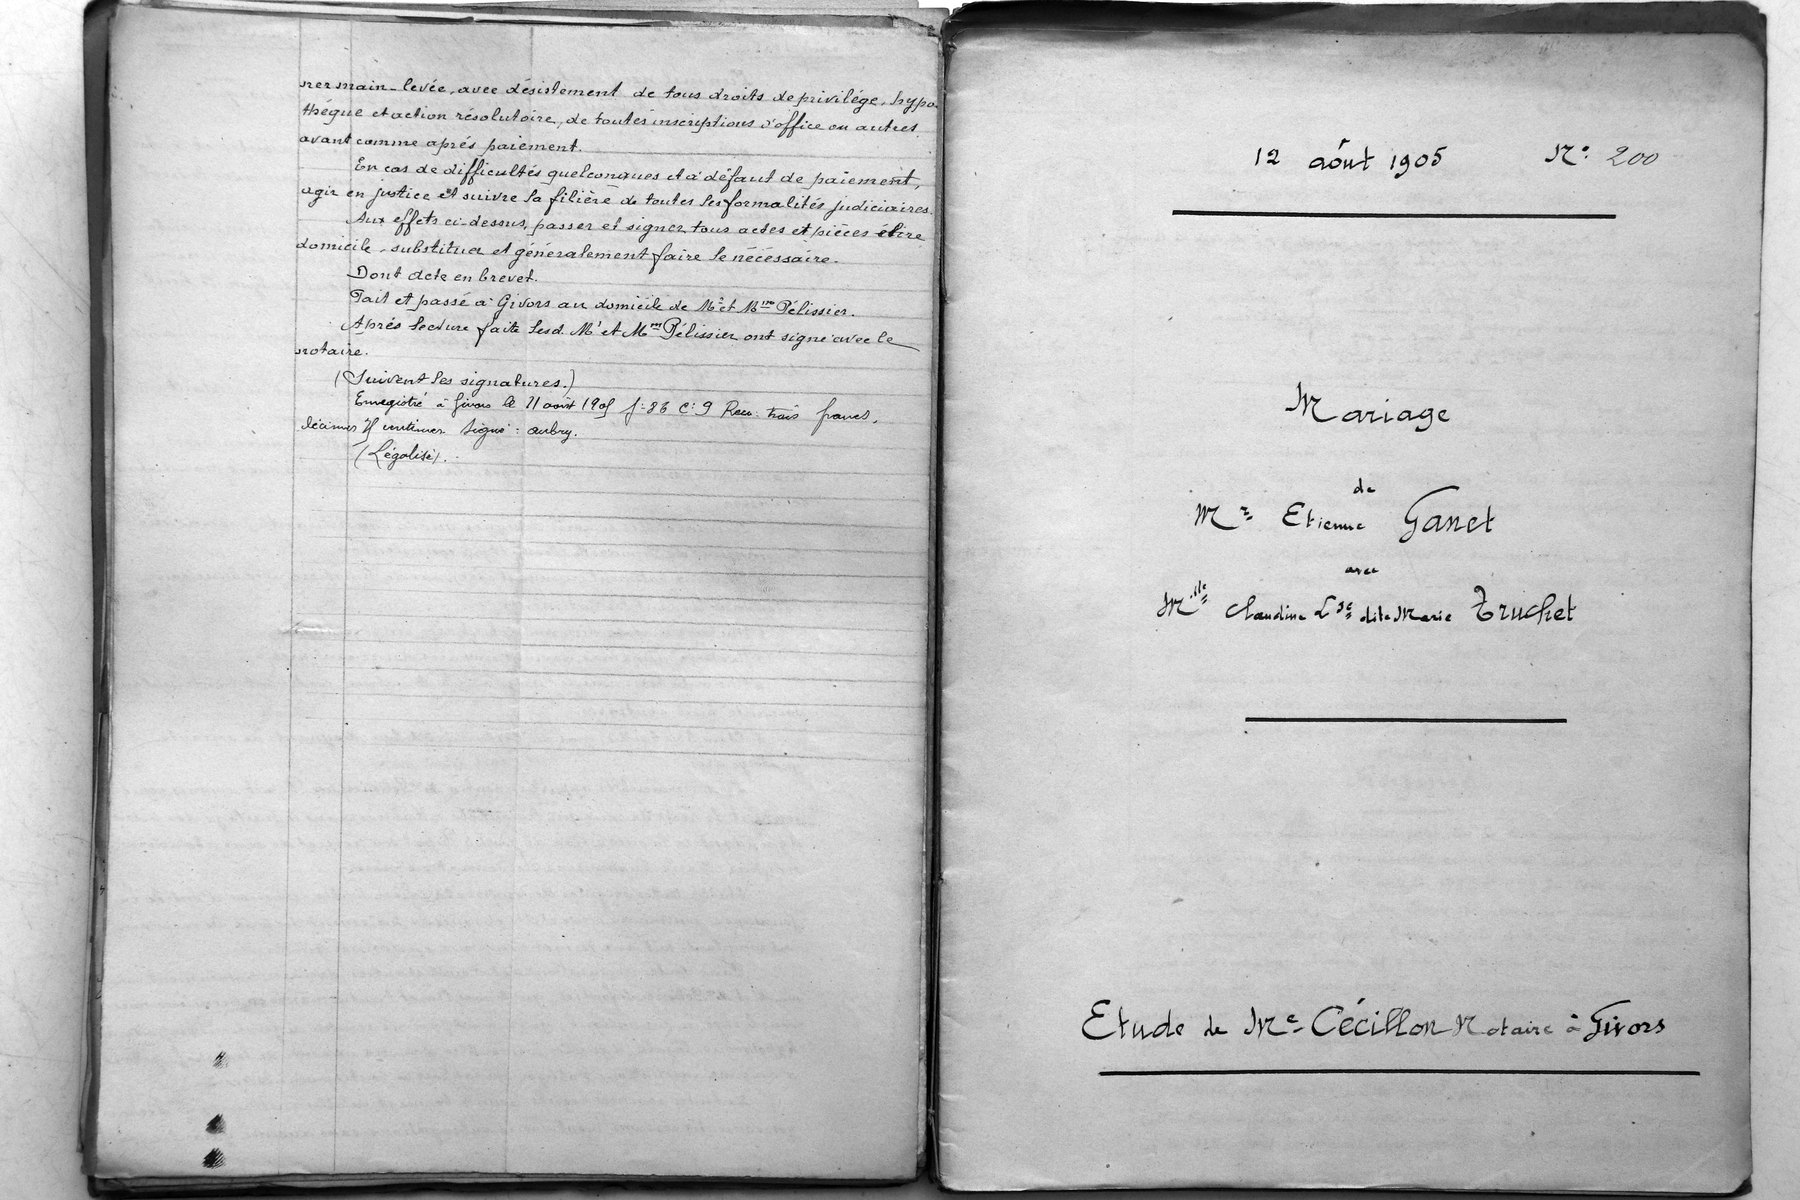 ner main-levée, avec désistement de tous droits de privilége, hypo-
théque et action résolutoire, de toutes inscriptions d'office ou autres
avant comme aprés paiement.
En cas de difficultés quelconques et à défaut de paiement,
agir en justice et suivre la filière de toutes les formalités judiciaires.
Aux effets ci-dessus, passer et signer tous actes et pièces élire
domicile, substituer et généralement faire le nécéssaire.
Dont acte en brevet.
Fait et passé à Givors au domicile de Mr et Mme Pélissier.
Aprés lecture faite lesd. Mr et Mme Pélissier ont signé avec le
notaire.
(Suivent les signatures.)
Enregistré à Givors le 11 août 1905 f: 86 C: 9 Reçu: trois francs,
décimes 75 centimes. Signé: Aubry.
(Légalisé).
12 août 1905 No: 200
Mariage
de
Mr Etienne Ganet
avec
Mlle Claudine Lse dite Marie Truchet
Etude de Me Cécillon Notaire à Givors